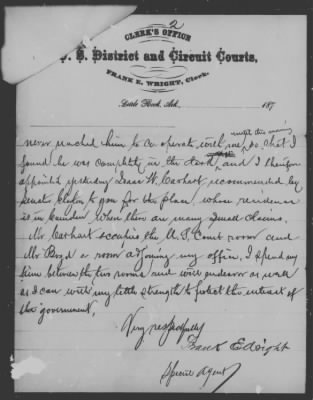 2
CLERK'S OFFICE
U. S. District and Circuit Courts,
FRANK E. WRIGHT, Clerk.
Little Rock, Ark. 187
until this morning
never reached him to co operate with me, so that I
found he was completely in the dark, and I therefore
appointed yesterday Isaac W. Carhart, recommended by
Senator Clayton to you for the place, whose residence
is in Camden where there are many small claims.
Mr Carhart occupies the U.S. Court room and
Mr Boyd a room adjoining my office, I spend my
time between the two rooms and will endeavor as well
as I can with my little strength to protect the interest of
the government,
Very respectfully
Frank E Wright
Special Agent